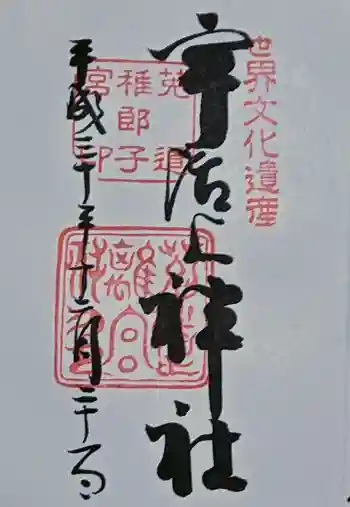 世界文化遺産
宇治上神社
菟道
稚郎子
宮印
平成三十年十二月二十一日